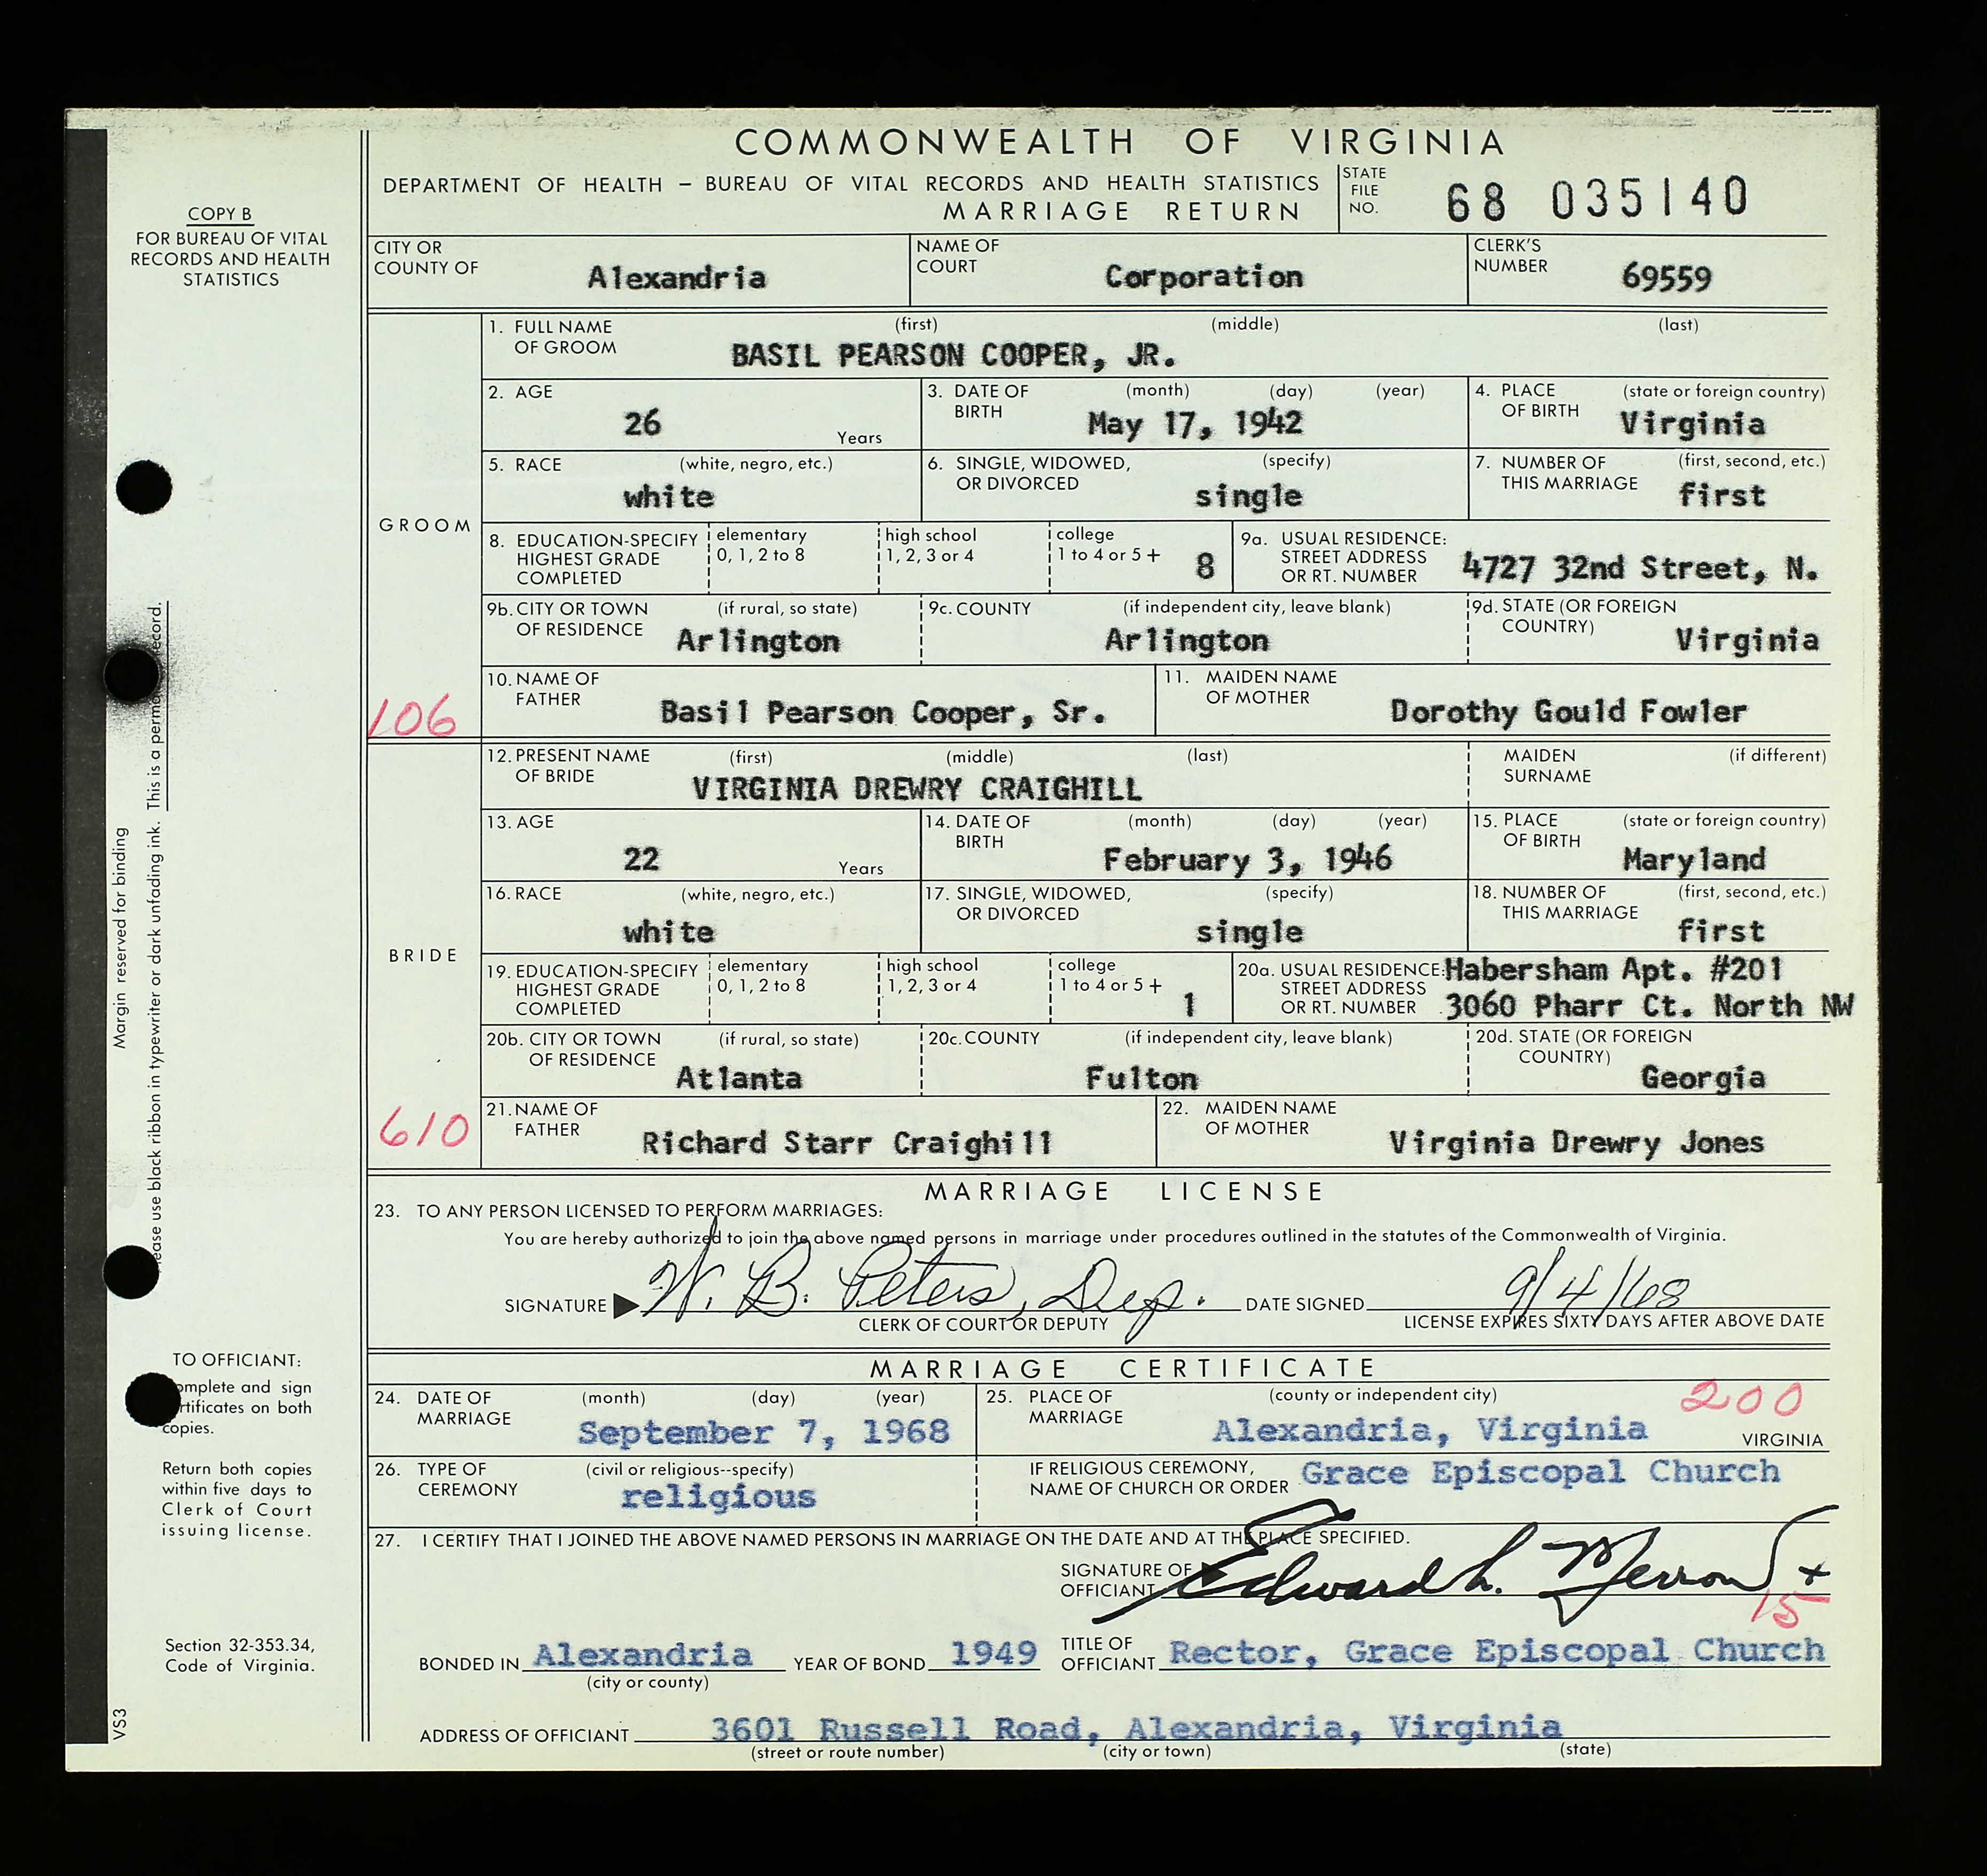 COMMONWEALTH OF VIRGINIA
DEPARTMENT OF HEALTH – BUREAU OF VITAL RECORDS AND HEALTH STATISTICS
MARRIAGE RETURN
STATE FILE NO. 68 035140
COPY B
FOR BUREAU OF VITAL
RECORDS AND HEALTH
STATISTICS
CITY OR COUNTY OF Alexandria
NAME OF COURT Corporation
CLERK'S NUMBER 69559
GROOM
1. FULL NAME OF GROOM (first) (middle) (last)
BASIL PEARSON COOPER, JR.
2. AGE 26 Years
3. DATE OF BIRTH (month) (day) (year) May 17, 1942
4. PLACE OF BIRTH (state or foreign country) Virginia
5. RACE (white, negro, etc.) white
6. SINGLE, WIDOWED, OR DIVORCED (specify) single
7. NUMBER OF THIS MARRIAGE (first, second, etc.) first
8. EDUCATION-SPECIFY HIGHEST GRADE COMPLETED elementary 0, 1, 2 to 8 high school 1, 2, 3 or 4 college 1 to 4 or 5+ 8
9a. USUAL RESIDENCE: STREET ADDRESS OR RT. NUMBER 4727 32nd Street, N.
9b. CITY OR TOWN OF RESIDENCE (if rural, so state) Arlington
9c. COUNTY (if independent city, leave blank) Arlington
9d. STATE (OR FOREIGN COUNTRY) Virginia
10. NAME OF FATHER Basil Pearson Cooper, Sr.
11. MAIDEN NAME OF MOTHER Dorothy Gould Fowler
106
BRIDE
12. PRESENT NAME OF BRIDE (first) (middle) (last) MAIDEN SURNAME (if different)
VIRGINIA DREWRY CRAIGHILL
13. AGE 22 Years
14. DATE OF BIRTH (month) (day) (year) February 3, 1946
15. PLACE OF BIRTH (state or foreign country) Maryland
16. RACE (white, negro, etc.) white
17. SINGLE, WIDOWED, OR DIVORCED (specify) single
18. NUMBER OF THIS MARRIAGE (first, second, etc.) first
19. EDUCATION-SPECIFY HIGHEST GRADE COMPLETED elementary 0, 1, 2 to 8 high school 1, 2, 3 or 4 college 1 to 4 or 5+ 1
20a. USUAL RESIDENCE: STREET ADDRESS OR RT. NUMBER Habersham Apt. #201
3060 Pharr Ct. North NW
20b. CITY OR TOWN OF RESIDENCE (if rural, so state) Atlanta
20c. COUNTY (if independent city, leave blank) Fulton
20d. STATE (OR FOREIGN COUNTRY) Georgia
21. NAME OF FATHER Richard Starr Craighill
22. MAIDEN NAME OF MOTHER Virginia Drewry Jones
610
MARRIAGE LICENSE
23. TO ANY PERSON LICENSED TO PERFORM MARRIAGES:
You are hereby authorized to join the above named persons in marriage under procedures outlined in the statutes of the Commonwealth of Virginia.
SIGNATURE W. B. Peters, Dep. DATE SIGNED 9/4/68
CLERK OF COURT OR DEPUTY LICENSE EXPIRES SIXTY DAYS AFTER ABOVE DATE
MARRIAGE CERTIFICATE
24. DATE OF MARRIAGE (month) (day) (year) September 7, 1968
25. PLACE OF MARRIAGE (county or independent city) Alexandria, Virginia VIRGINIA
200
26. TYPE OF CEREMONY (civil or religious--specify) religious
IF RELIGIOUS CEREMONY, NAME OF CHURCH OR ORDER Grace Episcopal Church
27. I CERTIFY THAT I JOINED THE ABOVE NAMED PERSONS IN MARRIAGE ON THE DATE AND AT THE PLACE SPECIFIED.
SIGNATURE OF OFFICIANT Edward L. Merrow +
15
BONDED IN Alexandria YEAR OF BOND 1949 TITLE OF OFFICIANT Rector, Grace Episcopal Church
(city or county)
ADDRESS OF OFFICIANT 3601 Russell Road, Alexandria, Virginia
(street or route number) (city or town) (state)
Margin reserved for binding
ease use black ribbon in typewriter or dark unfading ink. This is a perma ecord.
TO OFFICIANT:
omplete and sign
rtificates on both
copies.
Return both copies
within five days to
Clerk of Court
issuing license.
Section 32-353.34,
Code of Virginia.
VS3